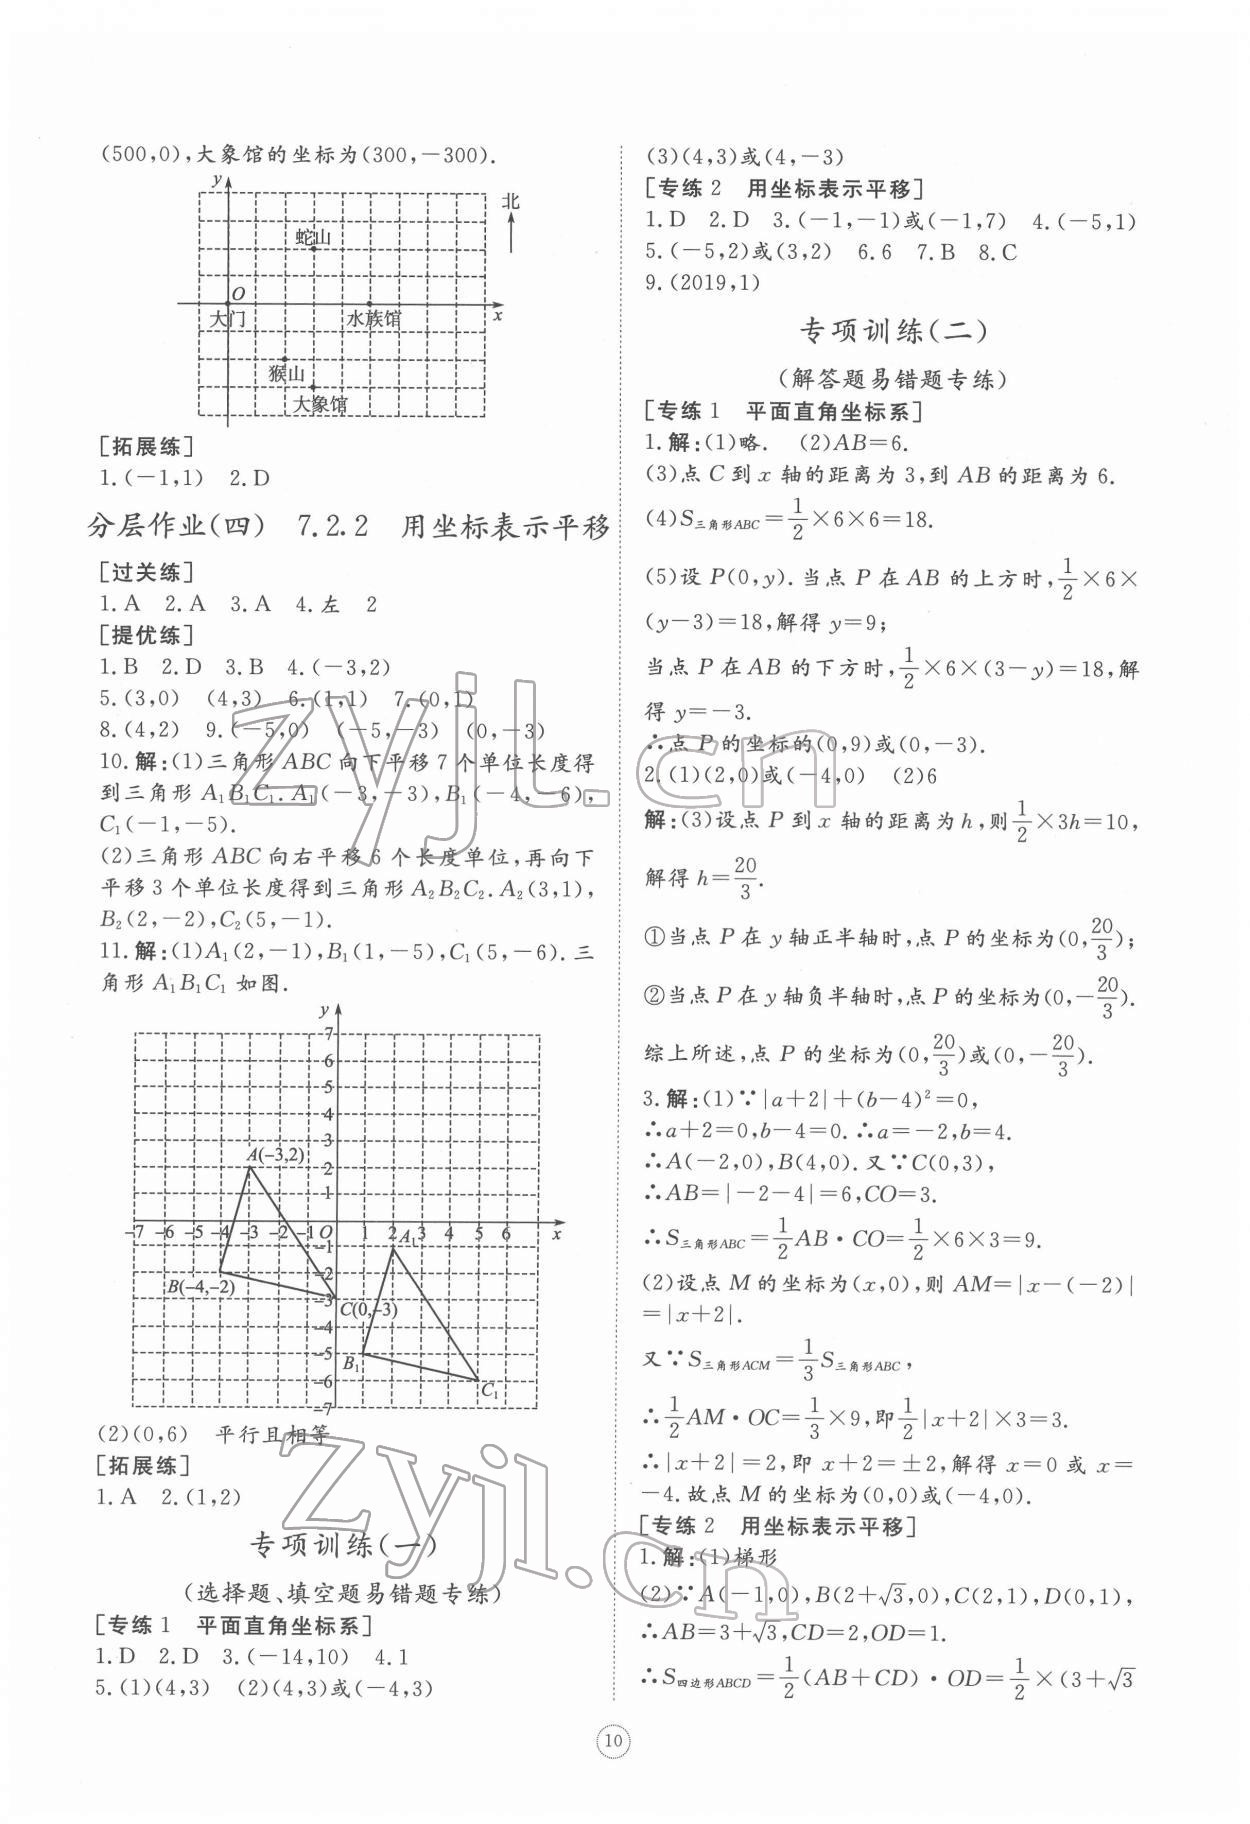 (500,0),大象馆的坐标为(300,-300).
y
北
蛇山
O
大门
水族馆
x
猴山
大象馆
[拓展练]
1.(-1,1)  2.D
分层作业(四)  7.2.2  用坐标表示平移
[过关练]
1.A  2.A  3.A  4.左  2
[提优练]
1.B  2.D  3.B  4.(-3,2)
5.(3,0)  (4,3)  6.(1,1)  7.(0,1)
8.(4,2)  9.(-5,0)  (-5,-3)  (0,-3)
10.解:(1)三角形ABC向下平移7个单位长度得
到三角形A₁B₁C₁.A₁(-3,-3),B₁(-4,-6),
C₁(-1,-5).
(2)三角形ABC向右平移6个长度单位,再向下
平移3个单位长度得到三角形A₂B₂C₂.A₂(3,1),
B₂(2,-2),C₂(5,-1).
11.解:(1)A₁(2,-1),B₁(1,-5),C₁(5,-6).三
角形A₁B₁C₁如图.
y
7
6
5
4
3
A(-3,2)
2
1
-7 -6 -5 -4 -3 -2 -1 O 1 2 3 4 5 6 x
-1
A₁
-2
B(-4,-2)
-3
C(0,-3)
-4
-5
B₁
-6
C₁
-7
(2)(0,6)  平行且相等
[拓展练]
1.A  2.(1,2)
专项训练(一)
(选择题、填空题易错题专练)
[专练1  平面直角坐标系]
1.D  2.D  3.(-14,10)  4.1
5.(1)(4,3)  (2)(4,3)或(-4,3)
(3)(4,3)或(4,-3)
[专练2  用坐标表示平移]
1.D  2.D  3.(-1,-1)或(-1,7)  4.(-5,1)
5.(-5,2)或(3,2)  6.6  7.B  8.C
9.(2019,1)
专项训练(二)
(解答题易错题专练)
[专练1  平面直角坐标系]
1.解:(1)略.  (2)AB=6.
(3)点C到x轴的距离为3,到AB的距离为6.
(4)S三角形ABC=1/2×6×6=18.
(5)设P(0,y).当点P在AB的上方时,1/2×6×
(y-3)=18,解得y=9;
当点P在AB的下方时,1/2×6×(3-y)=18,解
得y=-3.
∴点P的坐标的(0,9)或(0,-3).
2.(1)(2,0)或(-4,0)  (2)6
解:(3)设点P到x轴的距离为h,则1/2×3h=10,
解得h=20/3.
①当点P在y轴正半轴时,点P的坐标为(0,20/3);
②当点P在y轴负半轴时,点P的坐标为(0,-20/3).
综上所述,点P的坐标为(0,20/3)或(0,-20/3).
3.解:(1)∵|a+2|+(b-4)²=0,
∴a+2=0,b-4=0.∴a=-2,b=4.
∴A(-2,0),B(4,0).又∵C(0,3),
∴AB=|-2-4|=6,CO=3.
∴S三角形ABC=1/2AB·CO=1/2×6×3=9.
(2)设点M的坐标为(x,0),则AM=|x-(-2)|
=|x+2|.
又∵S三角形ACM=1/3S三角形ABC,
∴1/2AM·OC=1/3×9,即1/2|x+2|×3=3.
∴|x+2|=2,即x+2=±2,解得x=0或x=
-4.故点M的坐标为(0,0)或(-4,0).
[专练2  用坐标表示平移]
1.解:(1)梯形
(2)∵A(-1,0),B(2+√3,0),C(2,1),D(0,1),
∴AB=3+√3,CD=2,OD=1.
∴S四边形ABCD=1/2(AB+CD)·OD=1/2×(3+√3
10
zyjl.cn
zyjl.cn